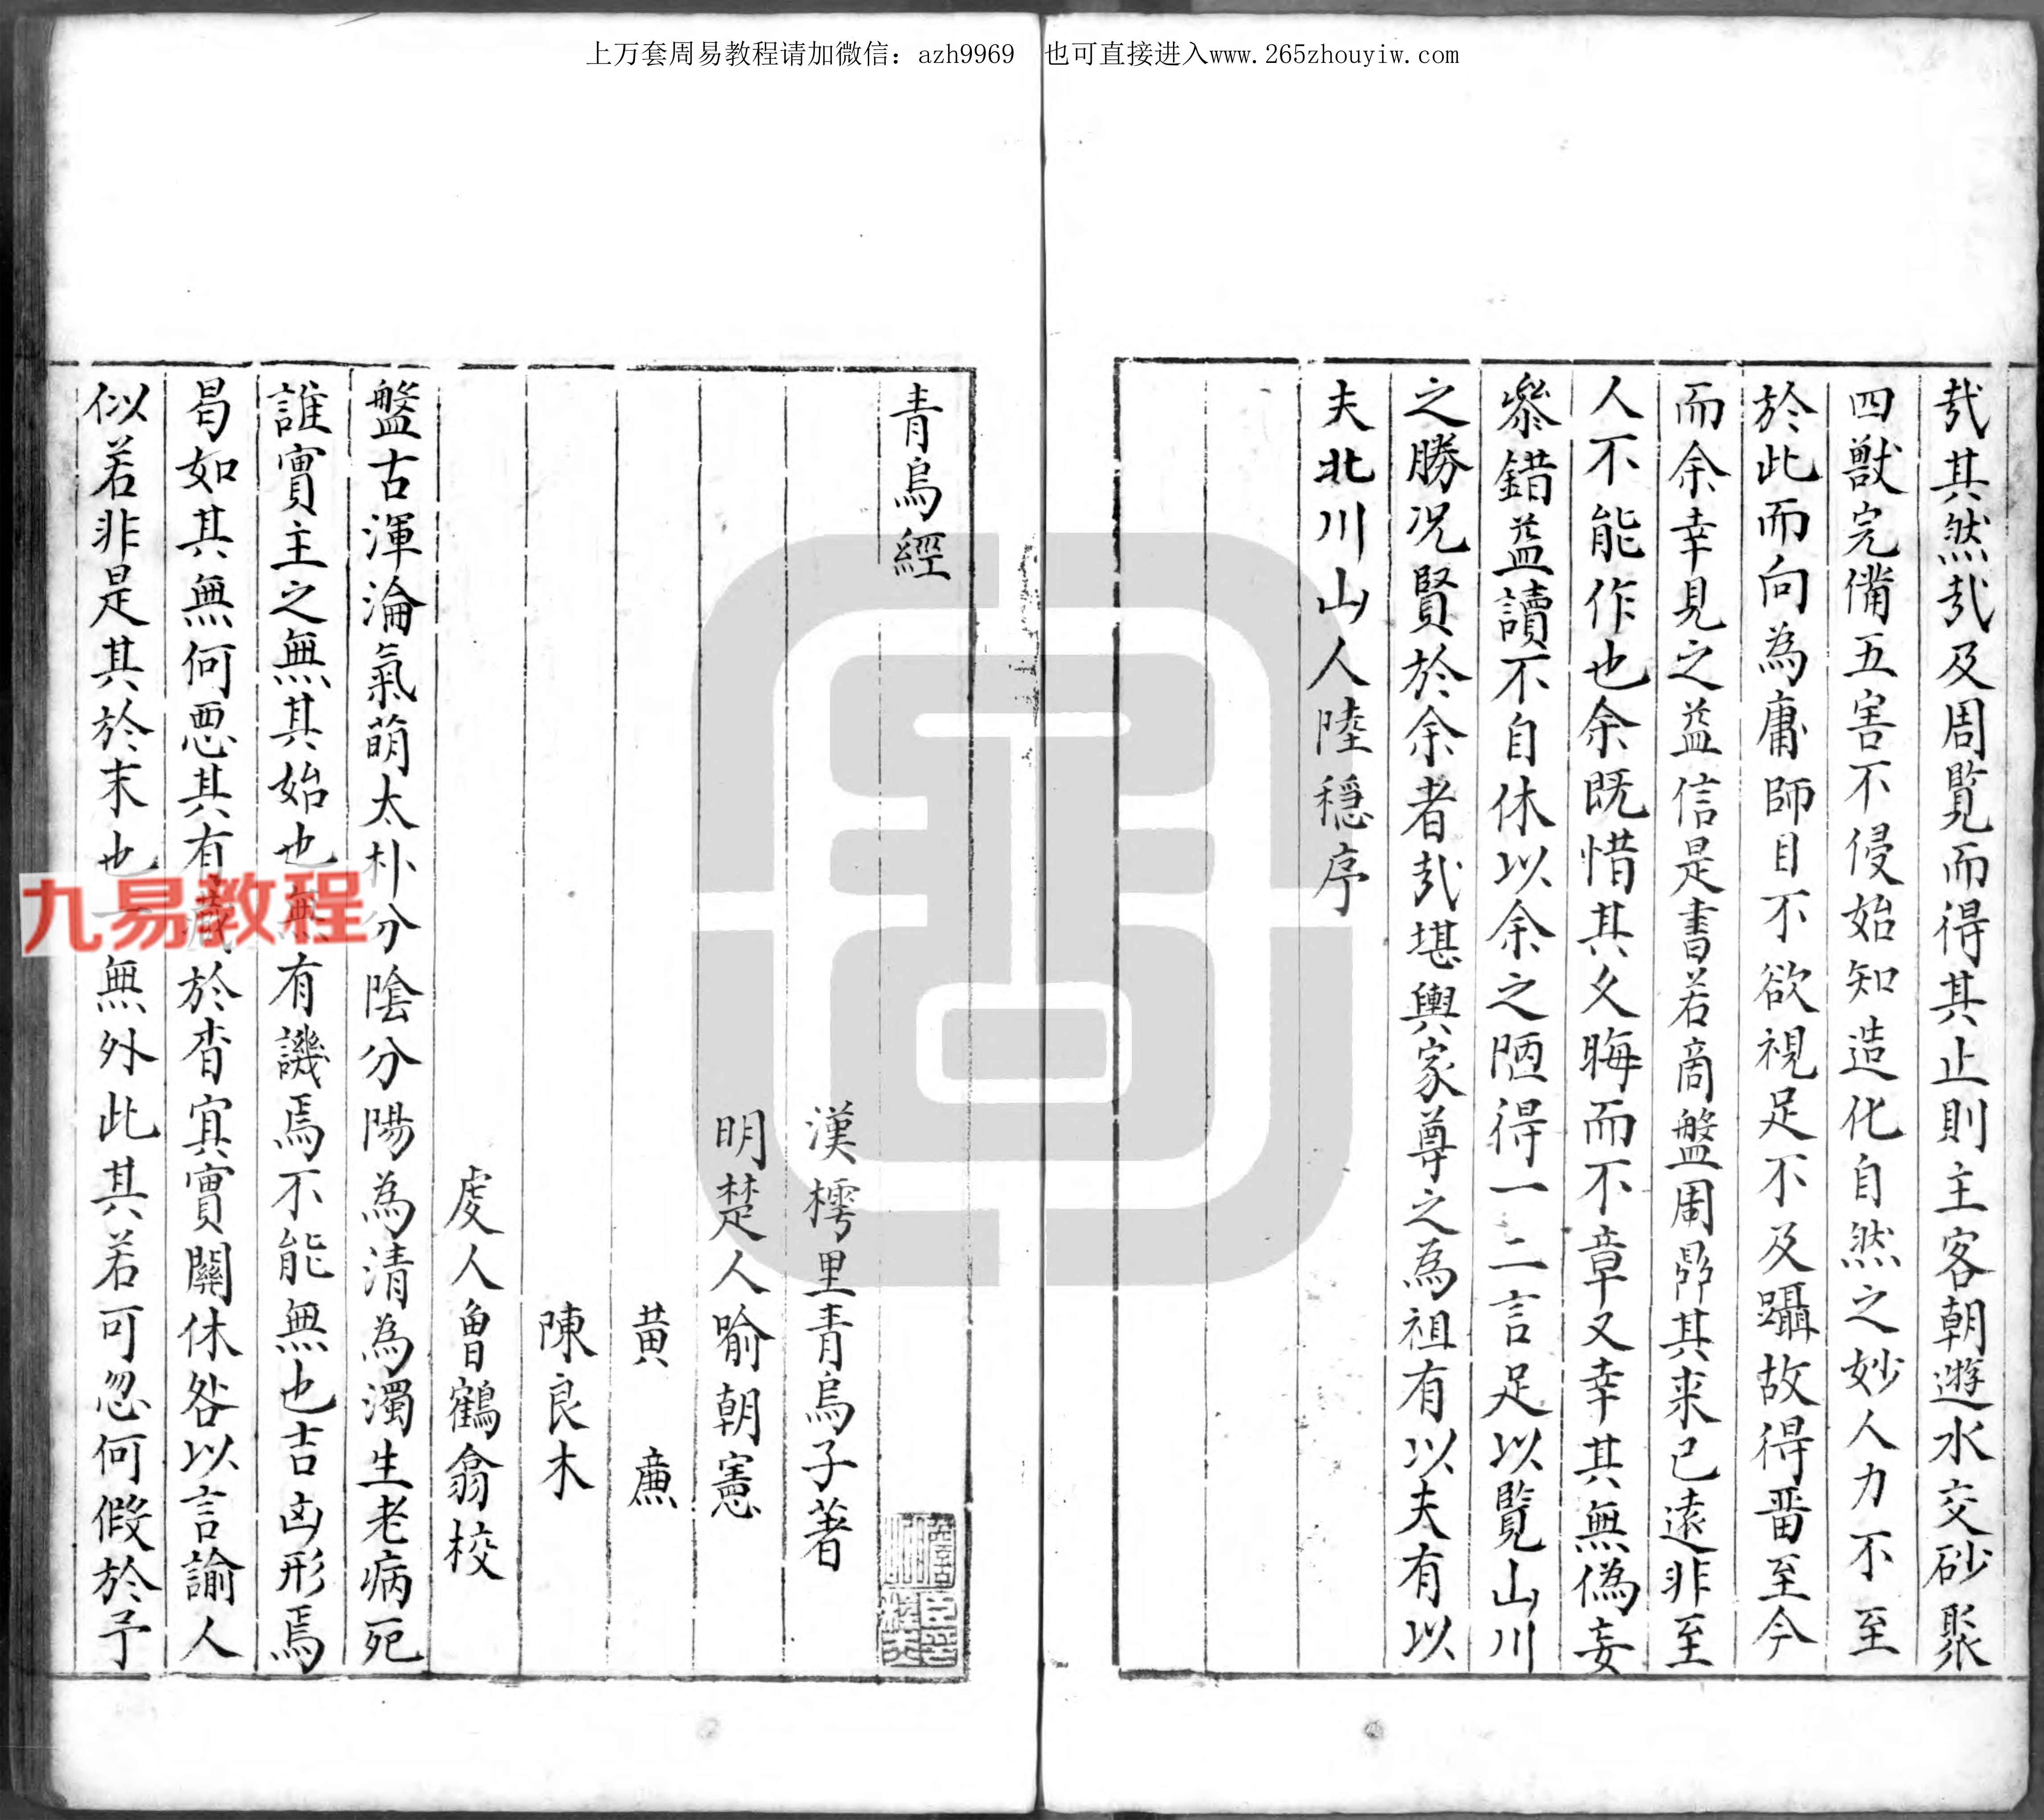 上万套周易教程请加微信：azh9969 也可直接进入www.265zhouyiw.com
哉其然哉及周覧而得其止則主客朝遊水交砂聚
四獸完備五害不侵始知造化自然之妙人力不至
於此而向為庸師目不欲視足不及躡故得畱至今
而余幸見之益信是書若商盤周鼎其来已遠非至
人不能作也余既惜其久晦而不章又幸其無偽妄
叅錯益讀不自休以余之陋得一二言足以覧山川
之勝况賢於余者哉堪輿家尊之為祖有以夫有以
夫北川山人陸穏序
青烏經
漢樗里青烏子著
明楚人喻朝憲
黄 㢘
陳良木
虔人魯鶴翕校
盤古渾淪氣萌太朴分陰分陽為清為濁生老病死
誰實主之無其始也無有議焉不能無也吉凶形焉
曷如其無何惡其有藏於杳冥實關休咎以言諭人
似若非是其於末也一無外此其若可忽何假於予
九易教程